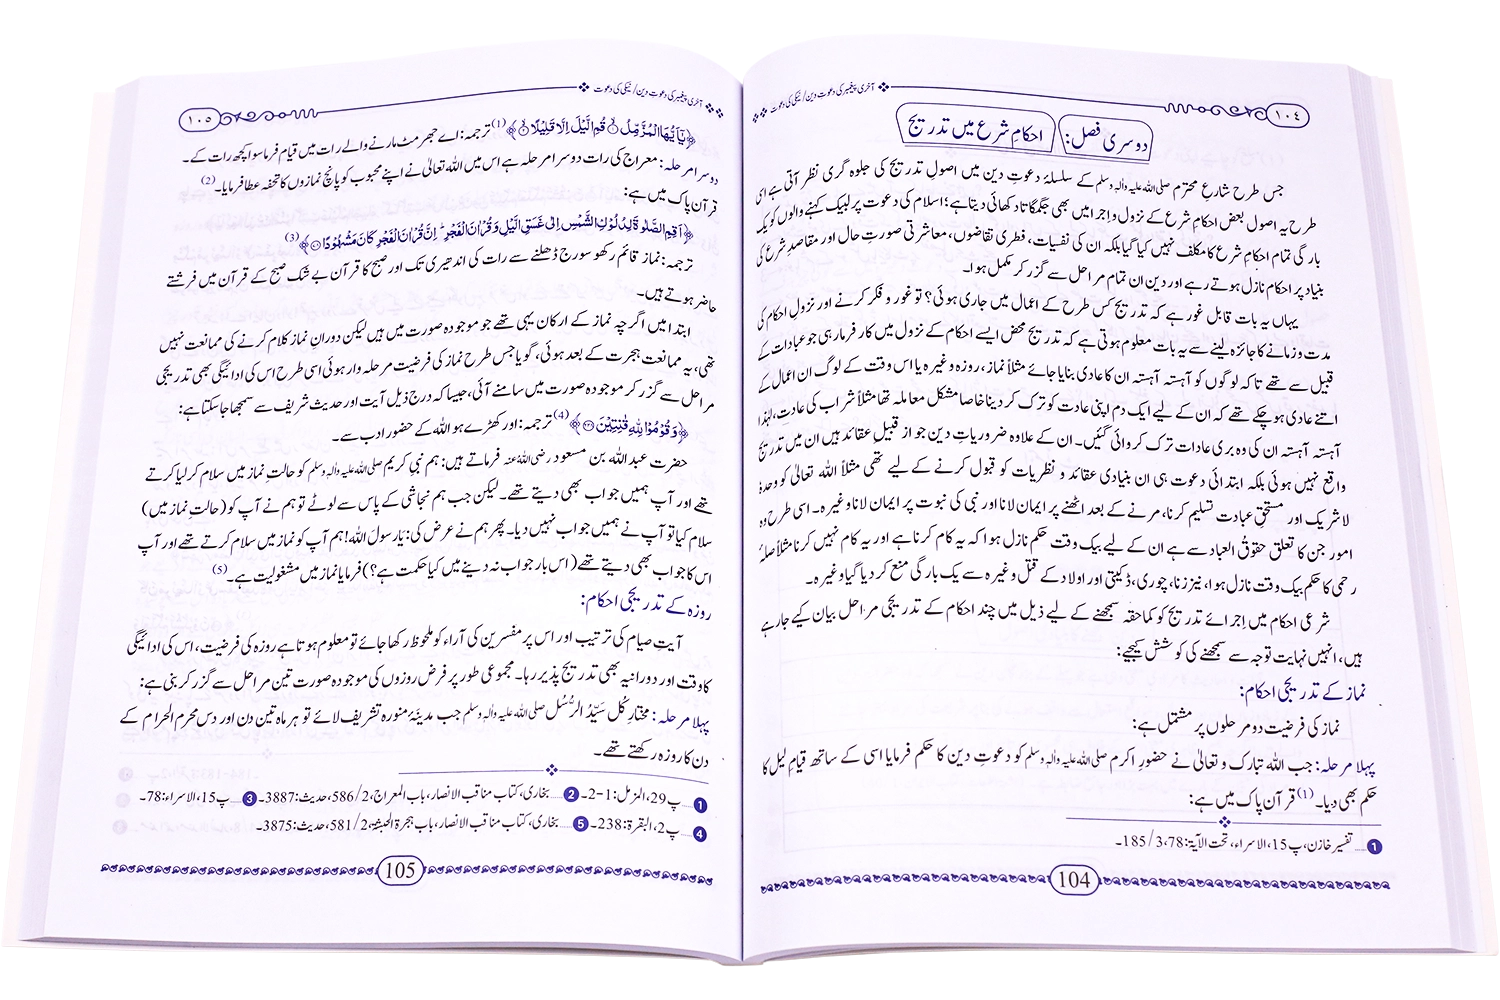 ١٠٤
آخری پیغمبر کی دعوتِ دین/نیکی کی دعوت
دوسری فصل: احکامِ شرع میں تدریج
جس طرح شارعِ محترم صلی اللہ علیہ واٰلہٖ وسلم کے سلسلۂ دعوتِ دین میں اصولِ تدریج کی جلوہ گری نظر آتی ہے اسی
طرح یہ اصول بعض احکامِ شرع کے نزول و اِجرا میں بھی جگمگاتا دکھائی دیتا ہے؛ اسلام کی دعوت پر لبیک کہنے والوں کو یک
بارگی تمام احکامِ شرع کا مکلف نہیں کیا گیا بلکہ ان کی نفسیات، فطری تقاضوں، معاشرتی صورتِ حال اور مقاصدِ شرع کی
بنیاد پر احکام نازل ہوتے رہے اور دین ان تمام مراحل سے گزر کر مکمل ہوا۔
یہاں یہ بات قابلِ غور ہے کہ تدریج کس طرح کے اعمال میں جاری ہوئی؟ تو غور و فکر کرنے اور نزولِ احکام کی
مدت و زمانے کا جائزہ لینے سے یہ بات معلوم ہوتی ہے کہ تدریج محض ایسے احکام کے نزول میں کار فرما رہی جو عبادات کے
قبیل سے تھے تاکہ لوگوں کو آہستہ آہستہ ان کا عادی بنایا جائے مثلاً نماز، روزہ وغیرہ یا اس وقت کے لوگ ان اعمال کے
اتنے عادی ہو چکے تھے کہ ان کے لیے ایک دم اپنی عادت کو ترک کر دینا خاصا مشکل معاملہ تھا مثلاً شراب کی عادت، لہٰذا
آہستہ آہستہ ان کی وہ بری عادات ترک کروائی گئیں۔ ان کے علاوہ ضروریاتِ دین جو از قبیلِ عقائد ہیں ان میں تدریج
واقع نہیں ہوئی بلکہ ابتدائی دعوت ہی ان بنیادی عقائد و نظریات کو قبول کرنے کے لیے تھی مثلاً اللہ تعالیٰ کو وحدہٗ
لاشریک اور مستحقِ عبادت تسلیم کرنا، مرنے کے بعد اٹھنے پر ایمان لانا اور نبی کی نبوت پر ایمان لانا وغیرہ۔ اسی طرح وہ
امور جن کا تعلق حقوقُ العباد سے ہے ان کے لیے بیک وقت حکم نازل ہوا کہ یہ کام کرنا ہے اور یہ کام نہیں کرنا مثلاً صلۂ
رحمی کا حکم بیک وقت نازل ہوا، نیز زنا، چوری، ڈکیتی اور اولاد کے قتل وغیرہ سے یک بارگی منع کر دیا گیا وغیرہ۔
شرعی احکام میں اِجرائے تدریج کو کماحقہ سمجھنے کے لیے ذیل میں چند احکام کے تدریجی مراحل بیان کیے جا رہے
ہیں، انہیں نہایت توجہ سے سمجھنے کی کوشش کیجیے:
نماز کے تدریجی احکام:
نماز کی فرضیت دو مرحلوں پر مشتمل ہے:
پہلا مرحلہ: جب اللہ تبارک و تعالیٰ نے حضورِ اکرم صلی اللہ علیہ واٰلہٖ وسلم کو دعوتِ دین کا حکم فرمایا اسی کے ساتھ قیامِ لیل کا
حکم بھی دیا۔(1) قرآنِ پاک میں ہے:
1 ..... تفسیر خازن، پ15، الاسراء، تحت الآیۃ: 78، 3/185۔
104
آخری پیغمبر کی دعوتِ دین/نیکی کی دعوت
١٠٥
﴿یٰۤاَیُّهَا الْمُزَّمِّلُۙ۝۱ قُمِ الَّیْلَ اِلَّا قَلِیْلًاۙ۝۲﴾(1) ترجمہ: اے جھرمٹ مارنے والے رات میں قیام فرما سوا کچھ رات کے۔
دوسرا مرحلہ: معراج کی رات دوسرا مرحلہ ہے اس میں اللہ تعالیٰ نے اپنے محبوب کو پانچ نمازوں کا تحفہ عطا فرمایا۔(2)
قرآنِ پاک میں ہے:
﴿اَقِمِ الصَّلٰوةَ لِدُلُوْكِ الشَّمْسِ اِلٰى غَسَقِ الَّیْلِ وَ قُرْاٰنَ الْفَجْرِؕ اِنَّ قُرْاٰنَ الْفَجْرِ كَانَ مَشْهُوْدًا۝۷۸﴾(3)
ترجمہ: نماز قائم رکھو سورج ڈھلنے سے رات کی اندھیری تک اور صبح کا قرآن بے شک صبح کے قرآن میں فرشتے
حاضر ہوتے ہیں۔
ابتدا میں اگرچہ نماز کے ارکان یہی تھے جو موجودہ صورت میں ہیں لیکن دورانِ نماز کلام کرنے کی ممانعت نہیں
تھی، یہ ممانعت ہجرت کے بعد ہوئی، گویا جس طرح نماز کی فرضیت مرحلہ وار ہوئی اسی طرح اس کی ادائیگی بھی تدریجی
مراحل سے گزر کر موجودہ صورت میں سامنے آئی، جیسا کہ درج ذیل آیت اور حدیث شریف سے سمجھا جا سکتا ہے:
﴿وَ قُوْمُوْا لِلّٰهِ قٰنِتِیْنَ۝۲۳۸﴾(4) ترجمہ: اور کھڑے ہو اللہ کے حضور ادب سے۔
حضرت عبد اللہ بن مسعود رضی اللہ عنہ فرماتے ہیں: ہم نبی کریم صلی اللہ علیہ واٰلہٖ وسلم کو حالتِ نماز میں سلام کر لیا کرتے
تھے اور آپ ہمیں جواب بھی دیتے تھے۔ لیکن جب ہم نجاشی کے پاس سے لوٹے تو ہم نے آپ کو (حالتِ نماز میں)
سلام کیا تو آپ نے ہمیں جواب نہیں دیا۔ پھر ہم نے عرض کی: یارسولَ اللہ! ہم آپ کو نماز میں سلام کرتے تھے اور آپ
اس کا جواب بھی دیتے تھے (اس بار جواب نہ دینے میں کیا حکمت ہے؟) فرمایا نماز میں مشغولیت ہے۔(5)
روزہ کے تدریجی احکام:
آیتِ صیام کی ترتیب اور اس پر مفسرین کی آراء کو ملحوظ رکھا جائے تو معلوم ہوتا ہے روزہ کی فرضیت، اس کی ادائیگی
کا وقت اور دورانیہ بھی تدریج پذیر رہا۔ مجموعی طور پر فرض روزوں کی موجودہ صورت تین مراحل سے گزر کر بنی ہے:
پہلا مرحلہ: مختارِ کُل سَیِّدُ الرُّسُل صلی اللہ علیہ واٰلہٖ وسلم جب مدینۂ منورہ تشریف لائے تو ہر ماہ تین دن اور دس محرم الحرام کے
دن کا روزہ رکھتے تھے۔
1 ..... پ29، المزمل: 1-2۔ 2 ..... بخاری، کتاب مناقب الانصار، باب المعراج، 2/586، حدیث: 3887۔ 3 ..... پ15، الاسراء: 78۔
4 ..... پ2، البقرۃ: 238۔ 5 ..... بخاری، کتاب مناقب الانصار، باب ہجرۃ الحبشۃ، 2/581، حدیث: 3875۔
105